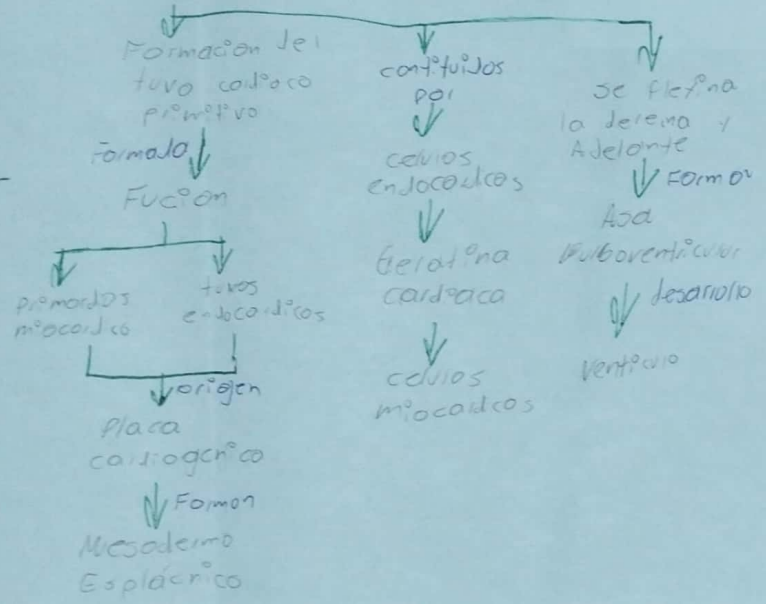 Formacion del
tuvo cardiaco
primitivo
Formada
Fucion
primordos
miocardico
tuvos
endocardicos
origen
Placa
cardiogenico
Forman
Mesodermo
Esplácnico
contituidos
por
celulas
endocardicos
Gelatina
cardiaca
celulas
miocardicos
se flexina
la derecha y
Adelante
Formar
Asa
Bulboventricular
desarrollo
ventriculo